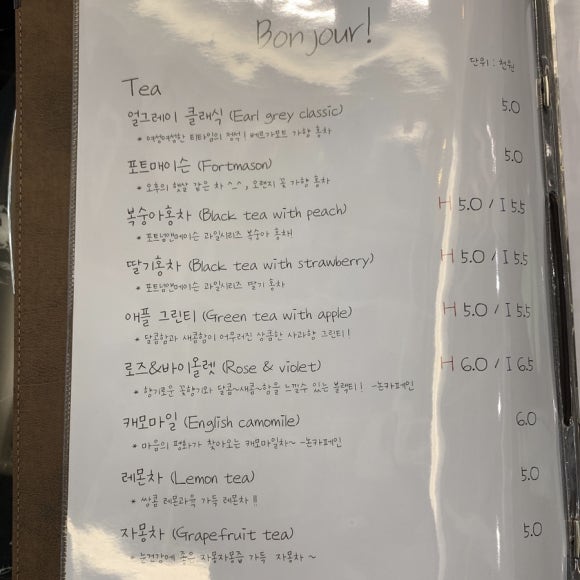 Bonjour!
단위 : 천원
Tea
얼그레이 클래식 (Earl grey classic) 5.0
* 여성여성한 티타임의 정석! 베르가모트 가향 홍차
포트메이슨 (Fortmason) 5.0
* 오후의 햇살 같은 차 ^_^, 오렌지 꽃 가향 홍차
복숭아홍차 (Black tea with peach) H 5.0 / I 5.5
* 포트넘앤메이슨 과일시리즈 복숭아 홍차
딸기홍차 (Black tea with strawberry) H 5.0 / I 5.5
* 포트넘앤메이슨 과일시리즈 딸기 홍차
애플 그린티 (Green tea with apple) H 5.0 / I 5.5
* 달콤함과 새콤함이 어우러진 상큼한 사과향 그린티!
로즈&바이올렛 (Rose & violet) H 6.0 / I 6.5
* 향기로운 꽃향기와 달콤~새콤~함을 느낄수 있는 블랙티! -논카페인
캐모마일 (English camomile) 6.0
* 마음의 평화가 찾아오는 캐모마일차~ -논카페인
레몬차 (Lemon tea) 5.0
* 쌍콤 레몬과육 가득 레몬차!!
자몽차 (Grapefruit tea) 5.0
* 눈건강에 좋은 자몽자몽즙 가득 자몽차~